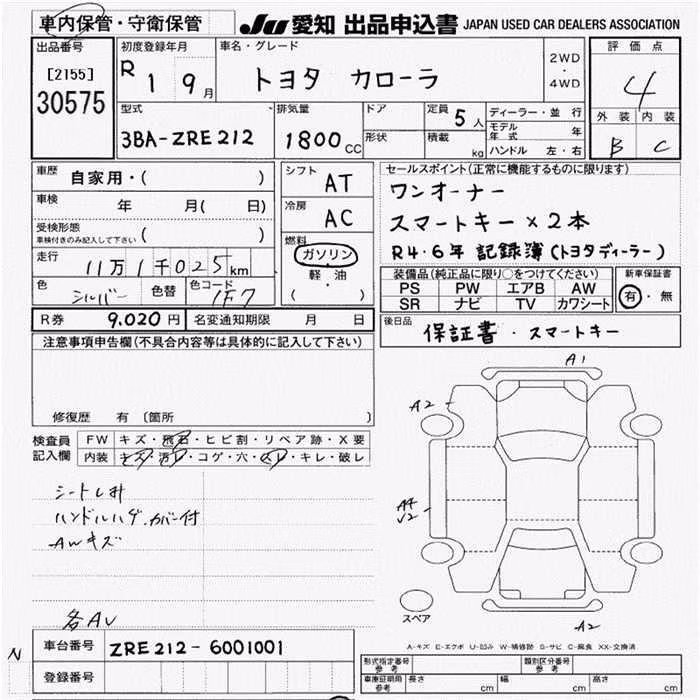 車内保管・守衛保管 JU 愛知 出品申込書 JAPAN USED CAR DEALERS ASSOCIATION
出品番号 初度登録年月 車名・グレード 2WD・4WD 評価点
[2155] R 1 9月 トヨタ カローラ 4
30575
型式 排気量 ドア 定員 5人 ディーラー・並行 外装 内装
3BA-ZRE212 1800CC 形状 積載 kg モデル年式 年 B C
ハンドル 左・右
車歴 自家用・( ) シフト AT セールスポイント(正常に機能するものに限ります)
車検 年 月( 日) 冷房 AC ワンオーナー
受検形態 車検付きのみ記入して下さい ( ) スマートキー×2本
燃料 ガソリン R4・6年 記録簿(トヨタディーラー)
走行 11万1千025km 軽・油
( )
色 シルバー 色替 色コード 1F7
装備品(純正品に限り○をつけてください) 新車保証書
PS PW エアB AW 有・無
SR ナビ TV カワシート
R券 9,020円 名変通知期限 月 日 後日品 保証書・スマートキー
注意事項申告欄(不具合内容等は具体的に記入して下さい)
修復歴 有 〔箇所
検査員記入欄 FW キズ・飛石・ヒビ割・リペア跡・X要
内装 キズ・汚レ・コゲ・穴・スレ・キレ・破レ
A1
A2
A4
V2
ハンドルハゲ、カバー付
AWキズ
スペア A2
A-キズ E-エクボ U-凹み W-補修跡 S-サビ C-腐食 XX-交換済
N 車台番号 ZRE212-6001001
登録番号
形式指定番号 参考 類別区分番号 参考
車庫証明用 参考 長さ cm 幅 cm 高さ cm